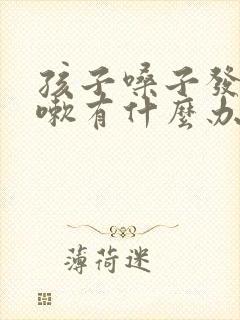 孩子嗓子發
嗽有什麼办
薄荷迷